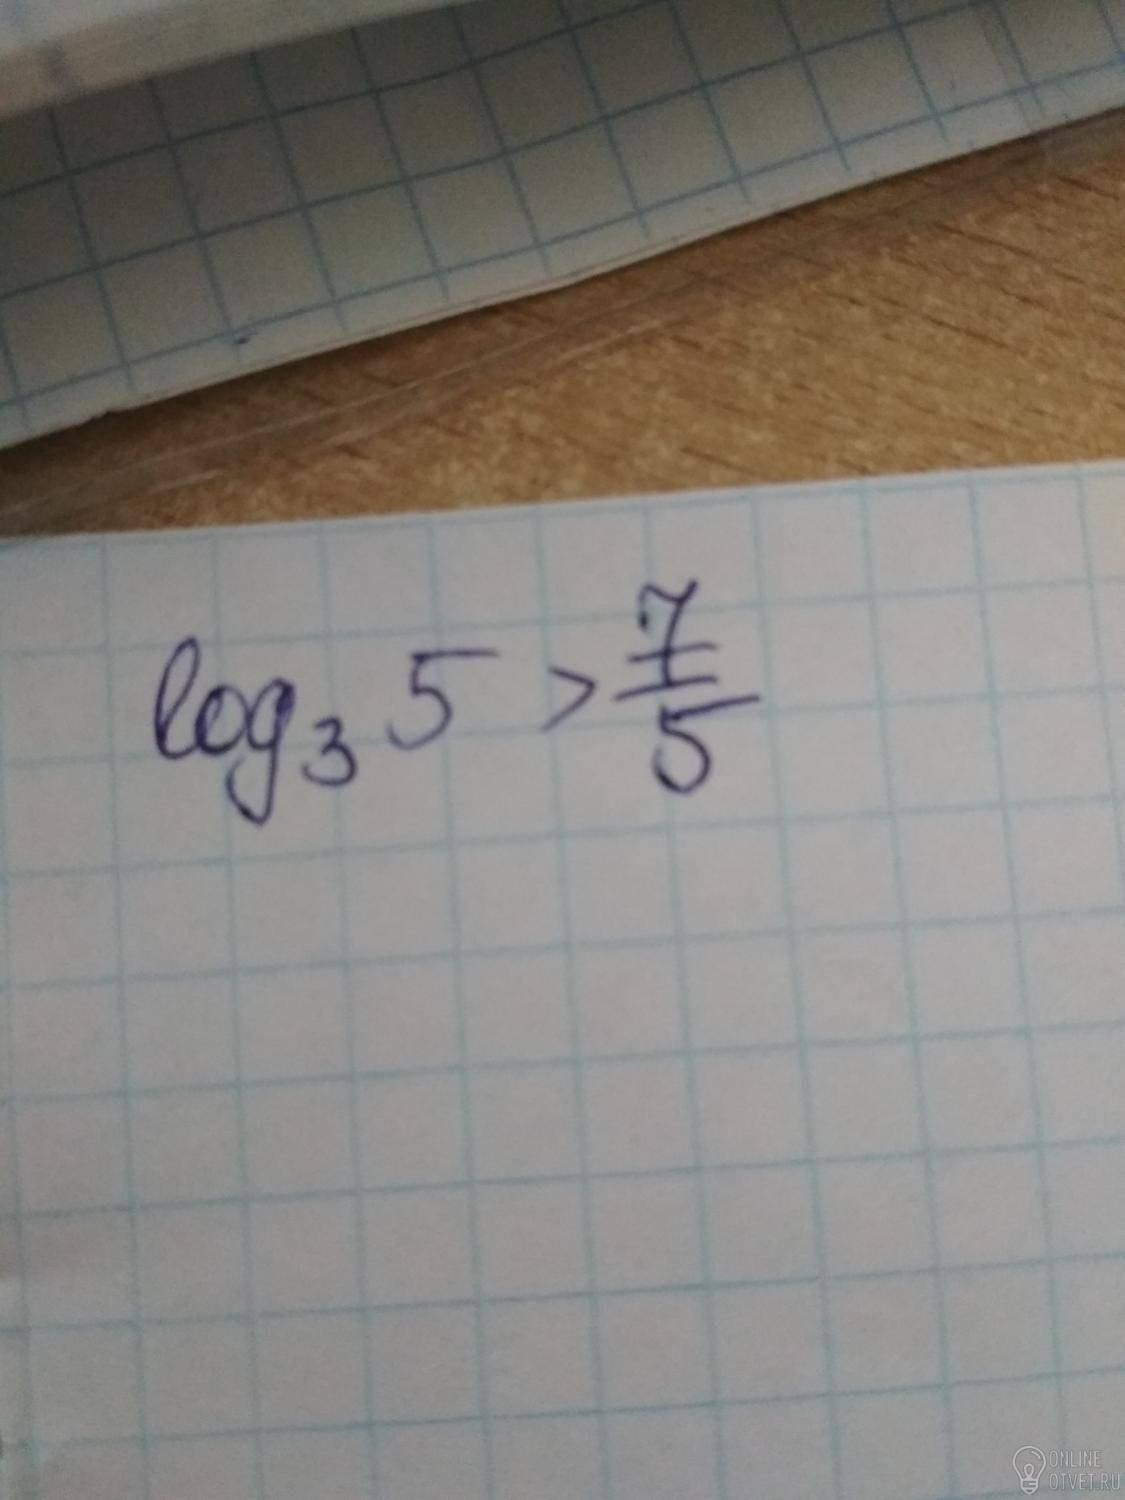 log₃ 5 > 7/5
ONLINE
OTVET.RU